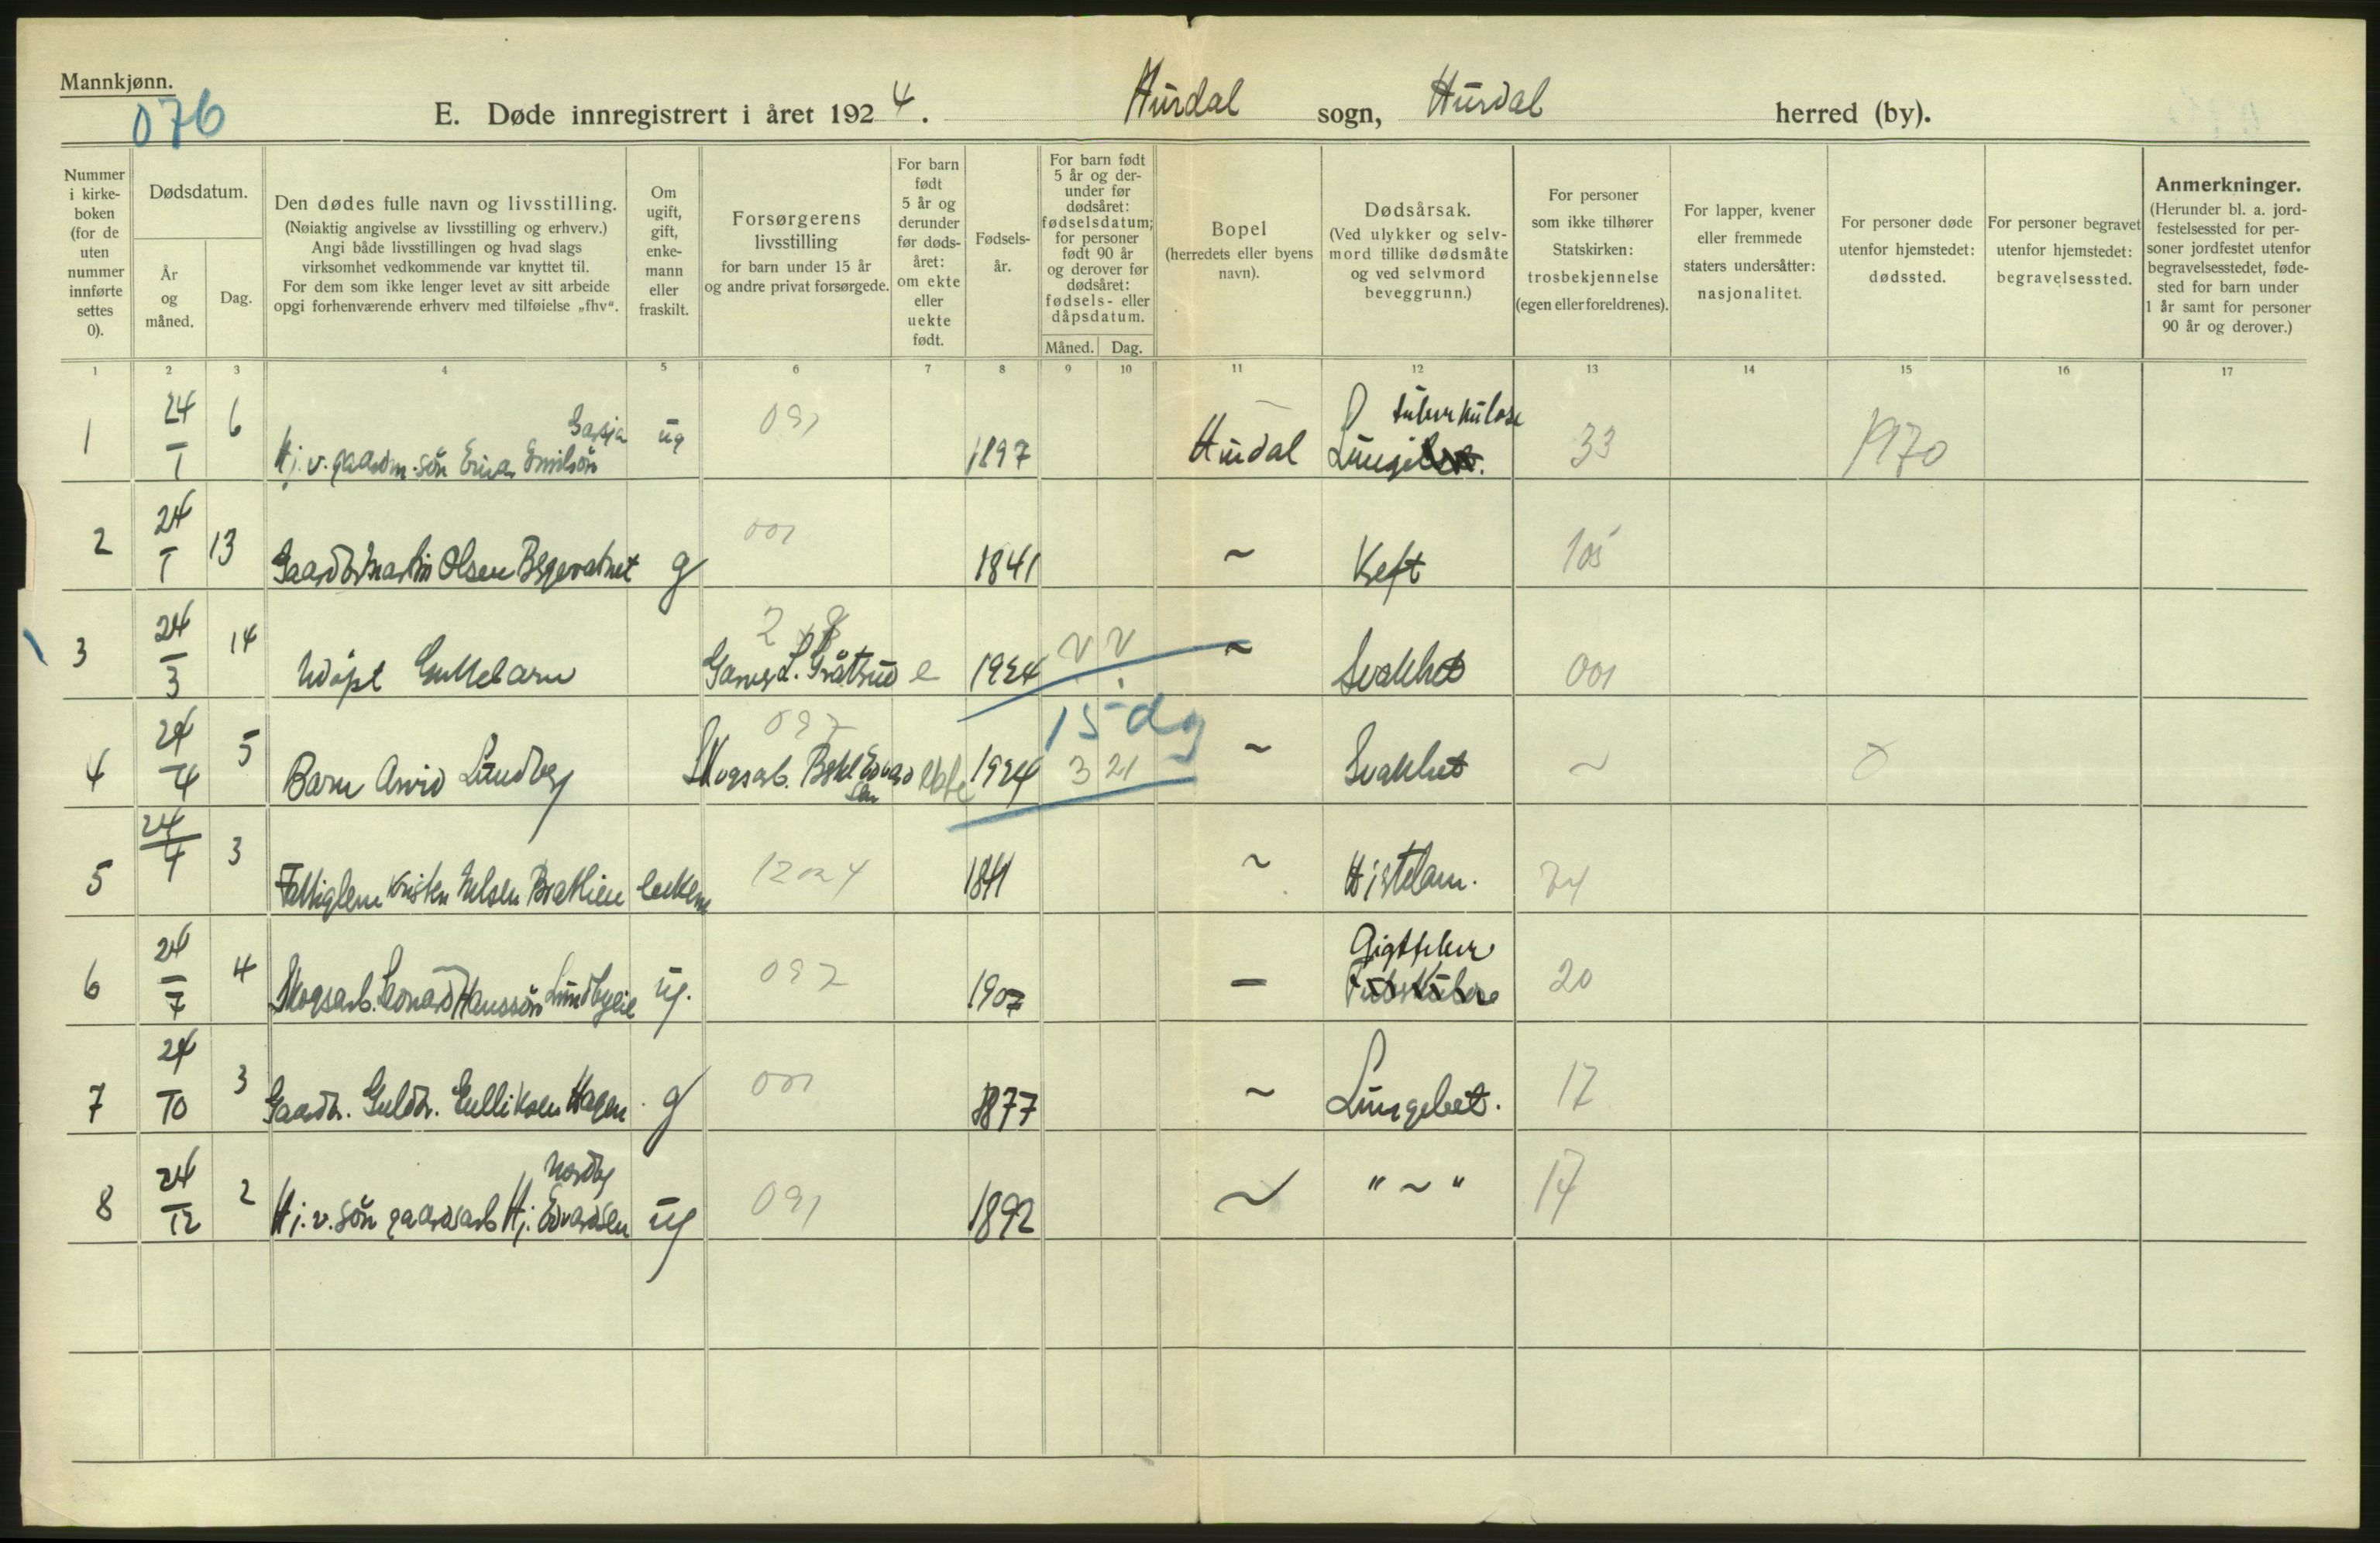 Mannkjønn.
076
E. Døde innregistrert i året 1924. Hurdal sogn, Hurdal herred (by).
Nummer i kirkeboken (for de uten nummer innførte settes 0).
Dødsdatum.
År og måned.
Dag.
Den dødes fulle navn og livsstilling.
(Nøiaktig angivelse av livsstilling og erhverv.)
Angi både livsstillingen og hvad slags
virksomhet vedkommende var knyttet til.
For dem som ikke lenger levet av sitt arbeide
opgi forhenværende erhverv med tilføielse „fhv“.
Om ugift, gift, enkemann eller fraskilt.
Forsørgerens livsstilling
for barn under 15 år
og andre privat forsørgede.
For barn født 5 år og derunder før dødsåret: om ekte eller uekte født.
Fødselsår.
For barn født 5 år og derunder før dødsåret: fødselsdatum; for personer født 90 år og derover før dødsåret: fødsels- eller dåpsdatum.
Måned. Dag.
Bopel
(herredets eller byens navn).
Dødsårsak.
(Ved ulykker og selvmord tillike dødsmåte og ved selvmord beveggrunn.)
For personer som ikke tilhører Statskirken: trosbekjennelse (egen eller foreldrenes).
For lapper, kvener eller fremmede staters undersåtter: nasjonalitet.
For personer døde utenfor hjemstedet: dødssted.
For personer begravet utenfor hjemstedet: begravelsessted.
Anmerkninger.
(Herunder bl. a. jordfestelsessted for personer jordfestet utenfor begravelsesstedet, fødested for barn under 1 år samt for personer 90 år og derover.)
1 2 3 4 5 6 7 8 9 10 11 12 13 14 15 16 17
1 24/1 6 Hj. v. gaardm. søn Einar Emilsøn Garsjø ug 091 1897 Hurdal Lunge tuberkulose 33 1970
2 24/1 13 Gaardbr Martin Olsen Bergevatnet g 001 1841 ~ Kreft 105
3 24/3 14 Udøpt Guttebarn e 1924 ~ Svakhet 001
15 dg
4 24/4 5 Barn Arvid Lundby Skogsarb. 097 1924 3 21 ~ Svakhet ~
5 24/4 3 Fattiglem Kristen Nelsen Brækkien enkem 1841 ~ Hjertelam. 74
6 24/7 4 Skogsarb. Leonard Hanssøn Lundbyeie ug. 092 1907 — Gigtfeber 20
7 24/10 3 Gaardbr. Guldbr. Gulliksen Hagen g 001 1877 ~ Lungebet. 17
8 24/12 2 Hj. v. søn gaardsarb Hj. Edvardsen Nordby ug 091 1892 ~ " ~ " 17